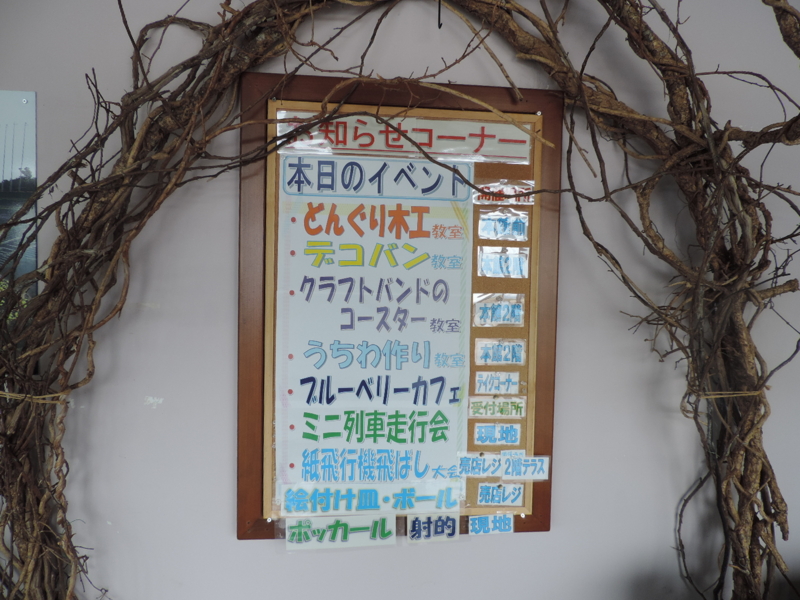 お知らせコーナー
本日のイベント
・どんぐり木工教室
・デコバン教室
・クラフトバンドの
コースター教室 本館2階
・うちわ作り教室 本館2階
・ブルーベリーカフェ テイクコーナー
受付場所
・ミニ列車走行会 現地
・紙飛行機飛ばし大会 売店レジ 2階テラス
絵付け皿・ボール 売店レジ
ポッカール 射的 現地